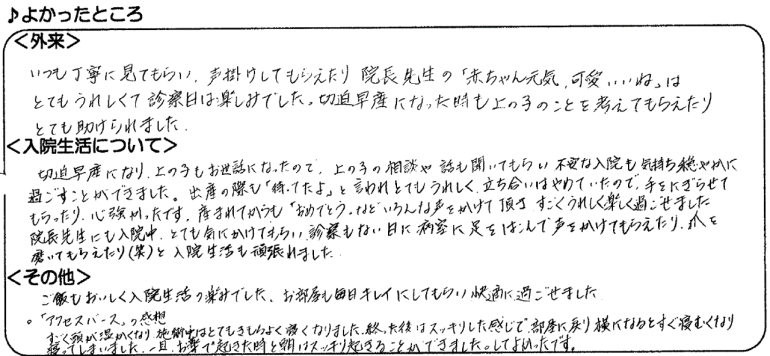 ♪よかったところ
<外来>
いつも丁寧に見てもらい、声掛けしてもらえたり 院長先生の「赤ちゃん元気、可愛いいね」は
とてもうれしくて診察日は楽しみでした。切迫早産になった時も上の子のことを考えてもらえたり
とても助けられました。
<入院生活について>
切迫早産になり、上の子もお世話になったので、上の子の相談や話も聞いてもらい 不安な入院も気持ち穏やかに
過ごすことができました。出産の際も「待ってたよ」と言われとてもうれしく、立ち合いはやめていたので、手をにぎらせて
もらったり、心強かったです。産まれてからも「おめでとう」などいろんな声をかけて頂き すごくうれしく楽しく過ごせました
院長先生にも入院中、とても気にかけてもらい、診察もない日に病室に足をはこんで声をかけてもらえたり、爪を
磨いてもらえたり(笑)と入院生活も頑張れました。
<その他>
ご飯もおいしく入院生活の楽みでした、お部屋も毎日キレイにしてもらい快適に過ごせました
。「アクセスバース」の感想
すごく頭が温かくなり 施術中はとてもきもちよく寝くなりました。終った後はスッキリした感じで、部屋に戻り横になるとすぐ寝むくなり
寝ってしまいました。一旦、お夢で起きた時と朝はスッキリ起きることができました。してよかったです。